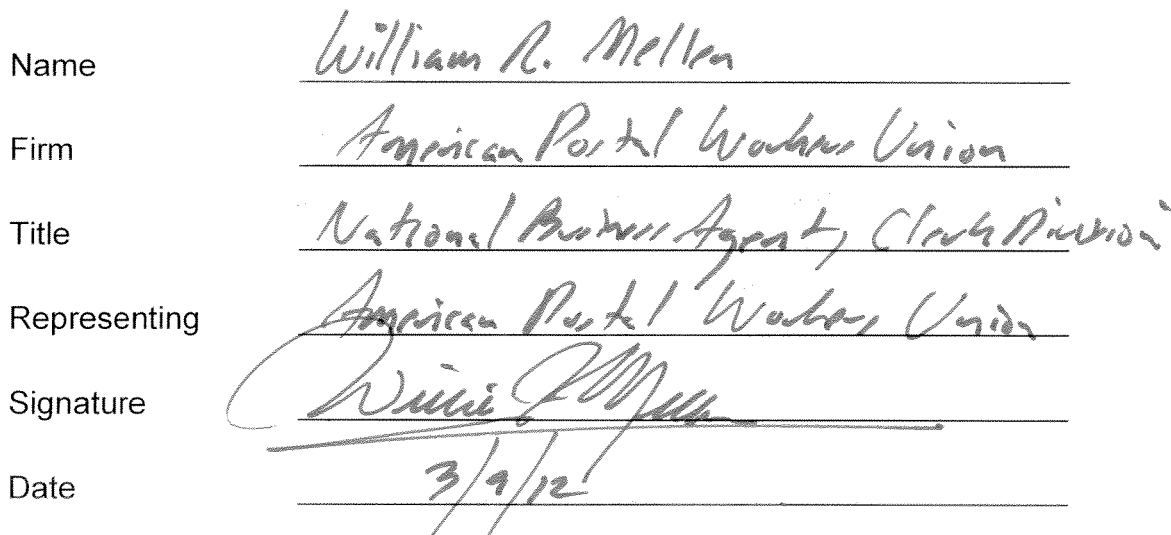 Name William R. Mellen
Firm American Postal Workers Union
Title National Business Agent, Clerk Division
Representing American Postal Workers Union
Signature
Date 3/9/12